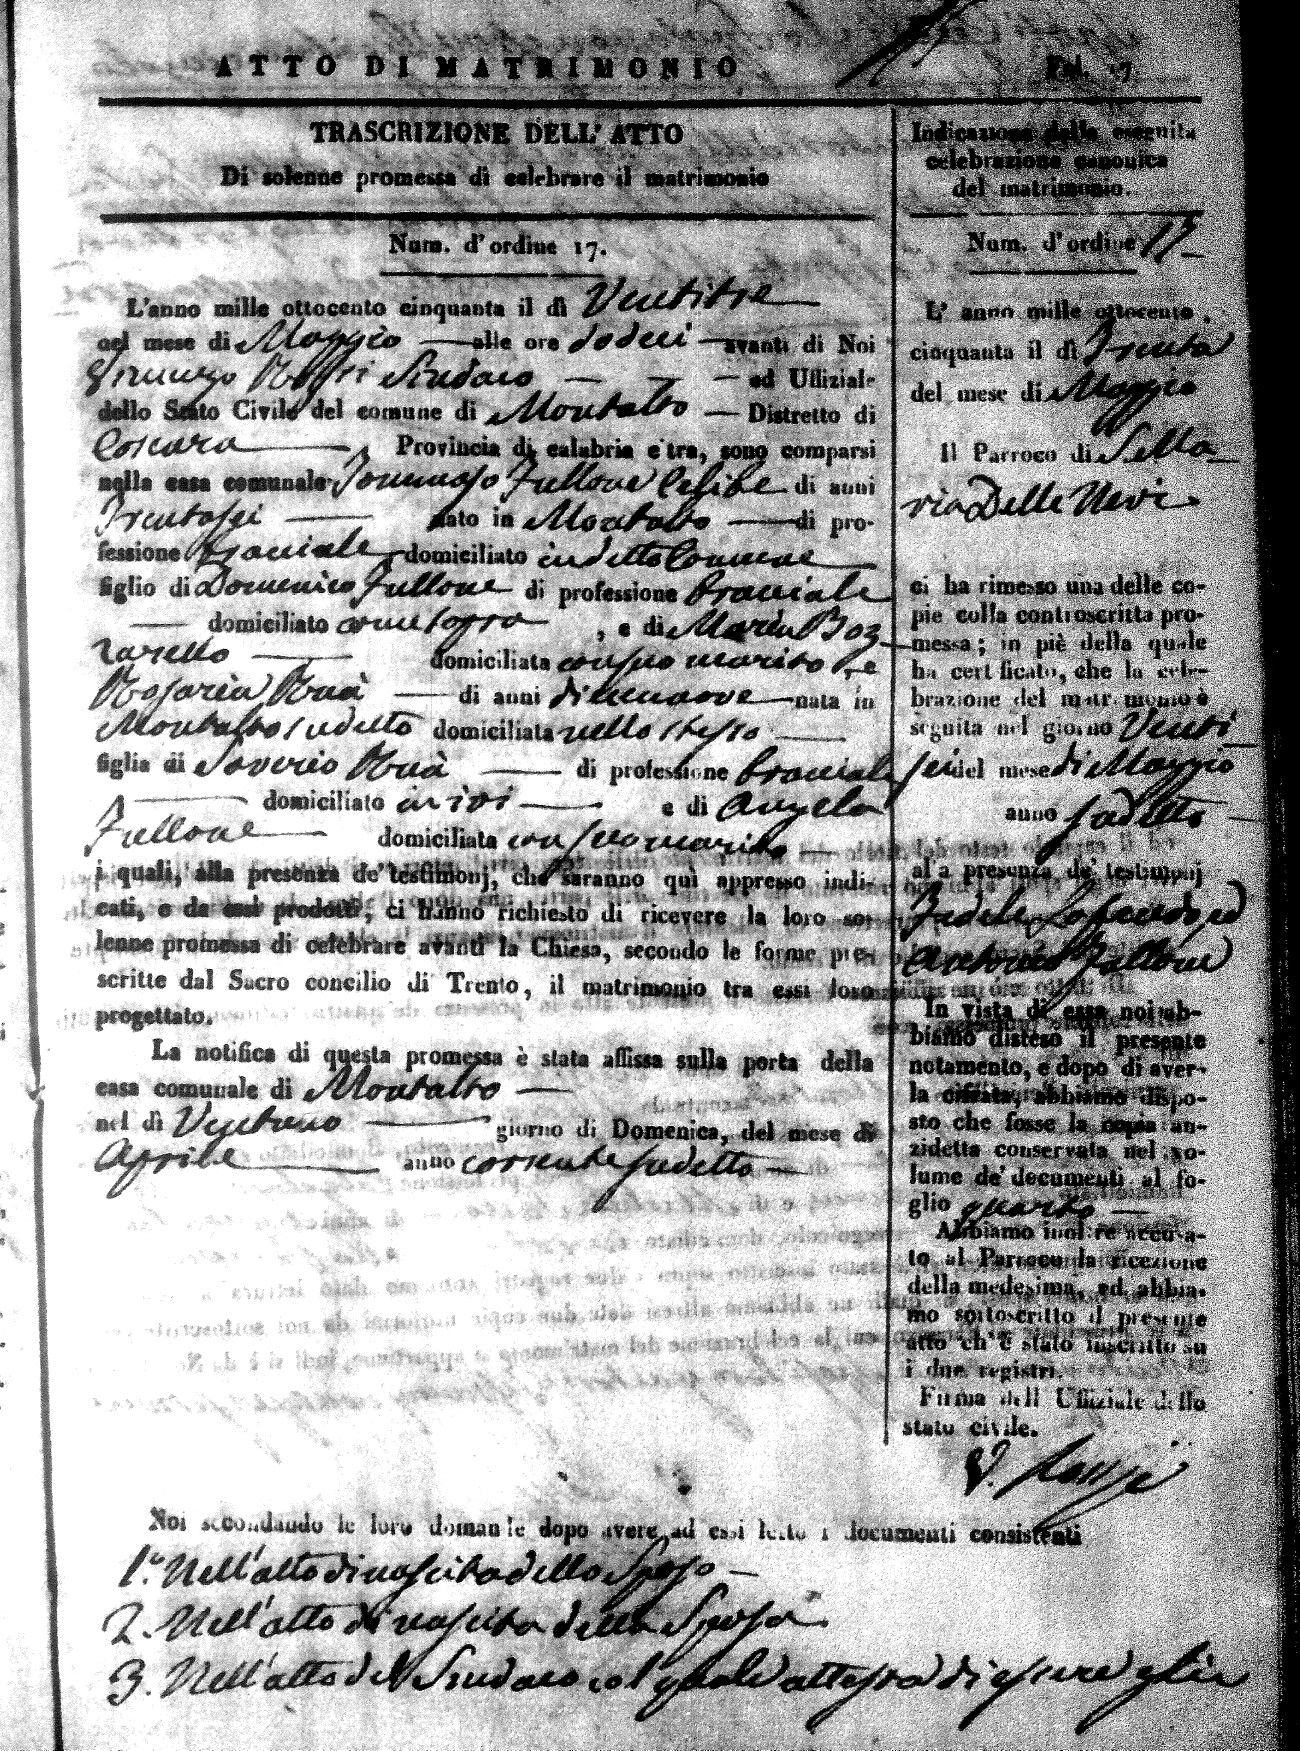 ATTO DI MATRIMONIO
Fol. 17
TRASCRIZIONE DELL' ATTO
Di solenne promessa di celebrare il matrimonio
Num. d'ordine 17.
L'anno mille ottocento cinquanta il dì Ventitre
nel mese di Maggio alle ore dodeci avanti di Noi
Rossi Sindaco ed Uffizial-
dello Stato Civile del comune di Montalto Distretto di
Cosenza Provincia di calabria citra, sono comparsi
nella casa comunale Tommaso Fullone Celibe di anni
Trentasei nato in Montalto di pro-
fessione bracciale domiciliato in detto Comune
figlio di Domenico Fullone di professione bracciale
domiciliato come sopra, e di Maria Boz
zarello domiciliata con suo marito, e
Rosaria Ruà di anni diecinnove nata in
Montalto sudetto domiciliata nello stesso
figlia di Saverio Ruà di professione bracciale
domiciliato in ivi e di Angela
Fullone domiciliata con suo marito
i quali, alla presenza de' testimonj, che saranno quì appresso indi-
cati, e da essi prodotti, ci hanno richiesto di ricevere la loro so-
lenne promessa di celebrare avanti la Chiesa, secondo le forme pre-
scritte dal Sacro concilio di Trento, il matrimonio tra essi loro
progettato.
La notifica di questa promessa è stata affissa sulla porta della
casa comunale di Montalto
nel dì Ventuno giorno di Domenica, del mese di
Aprile anno corrente sudetto
Indicazione della eseguita
celebrazione canonica
del matrimonio.
Num. d'ordine 17
L' anno mille ottocento
cinquanta il dì Trenta
del mese di Maggio
Il Parroco di S. Ma
ria Delle Nevi
ci ha rimesso una delle co-
pie colla controscritta pro-
messa; in piè della quale
ha certificato, che la cele-
brazione del matrimonio è
seguita nel giorno Venti
sei del mese di Maggio
anno sudetto
alla presenza de' testimonj
Fedele ed
Antonio Fullone
In vista di essa noi ab-
biamo disteso il presente
notamento, e dopo di aver-
la cifrata, abbiamo dispo-
sto che fosse la copia an-
zidetta conservata nel vo-
lume de' documenti al fo-
glio quarto
Abbiamo inoltre accusa-
to al Parroco la ricezione
della medesima, ed abbia-
mo sottoscritto il presente
atto ch' è stato inscritto su
i due registri.
Firma dell Uffiziale dello
stato civile.
Noi secondando le loro domande dopo avere ad essi letto i documenti consistenti
1.º Nell'atto di nascita dello Sposo
2. Nell'atto di nascita della Sposa
3. Nell'atto del Sindaco col quale attesta di essere